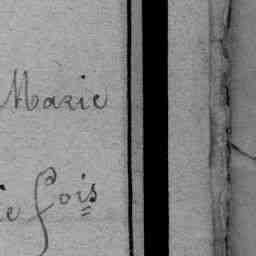 Marie
ie fois